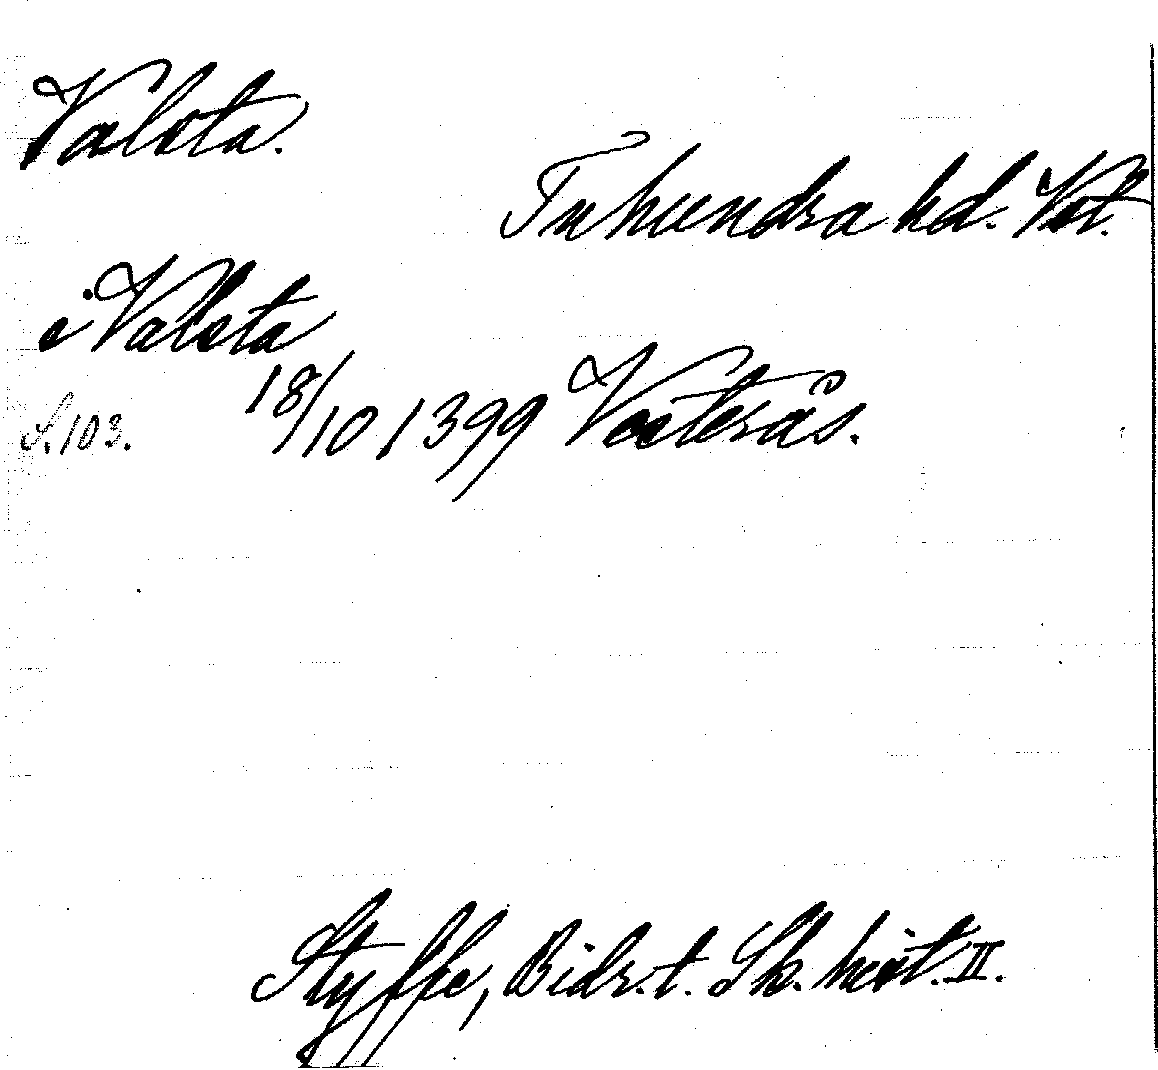 Valsta.
Tuhundra hd. Vst.
i Valsta
S. 103. 18/10 1399 Västerås.
Styffe, Bidr. t. Sk. hist. II.